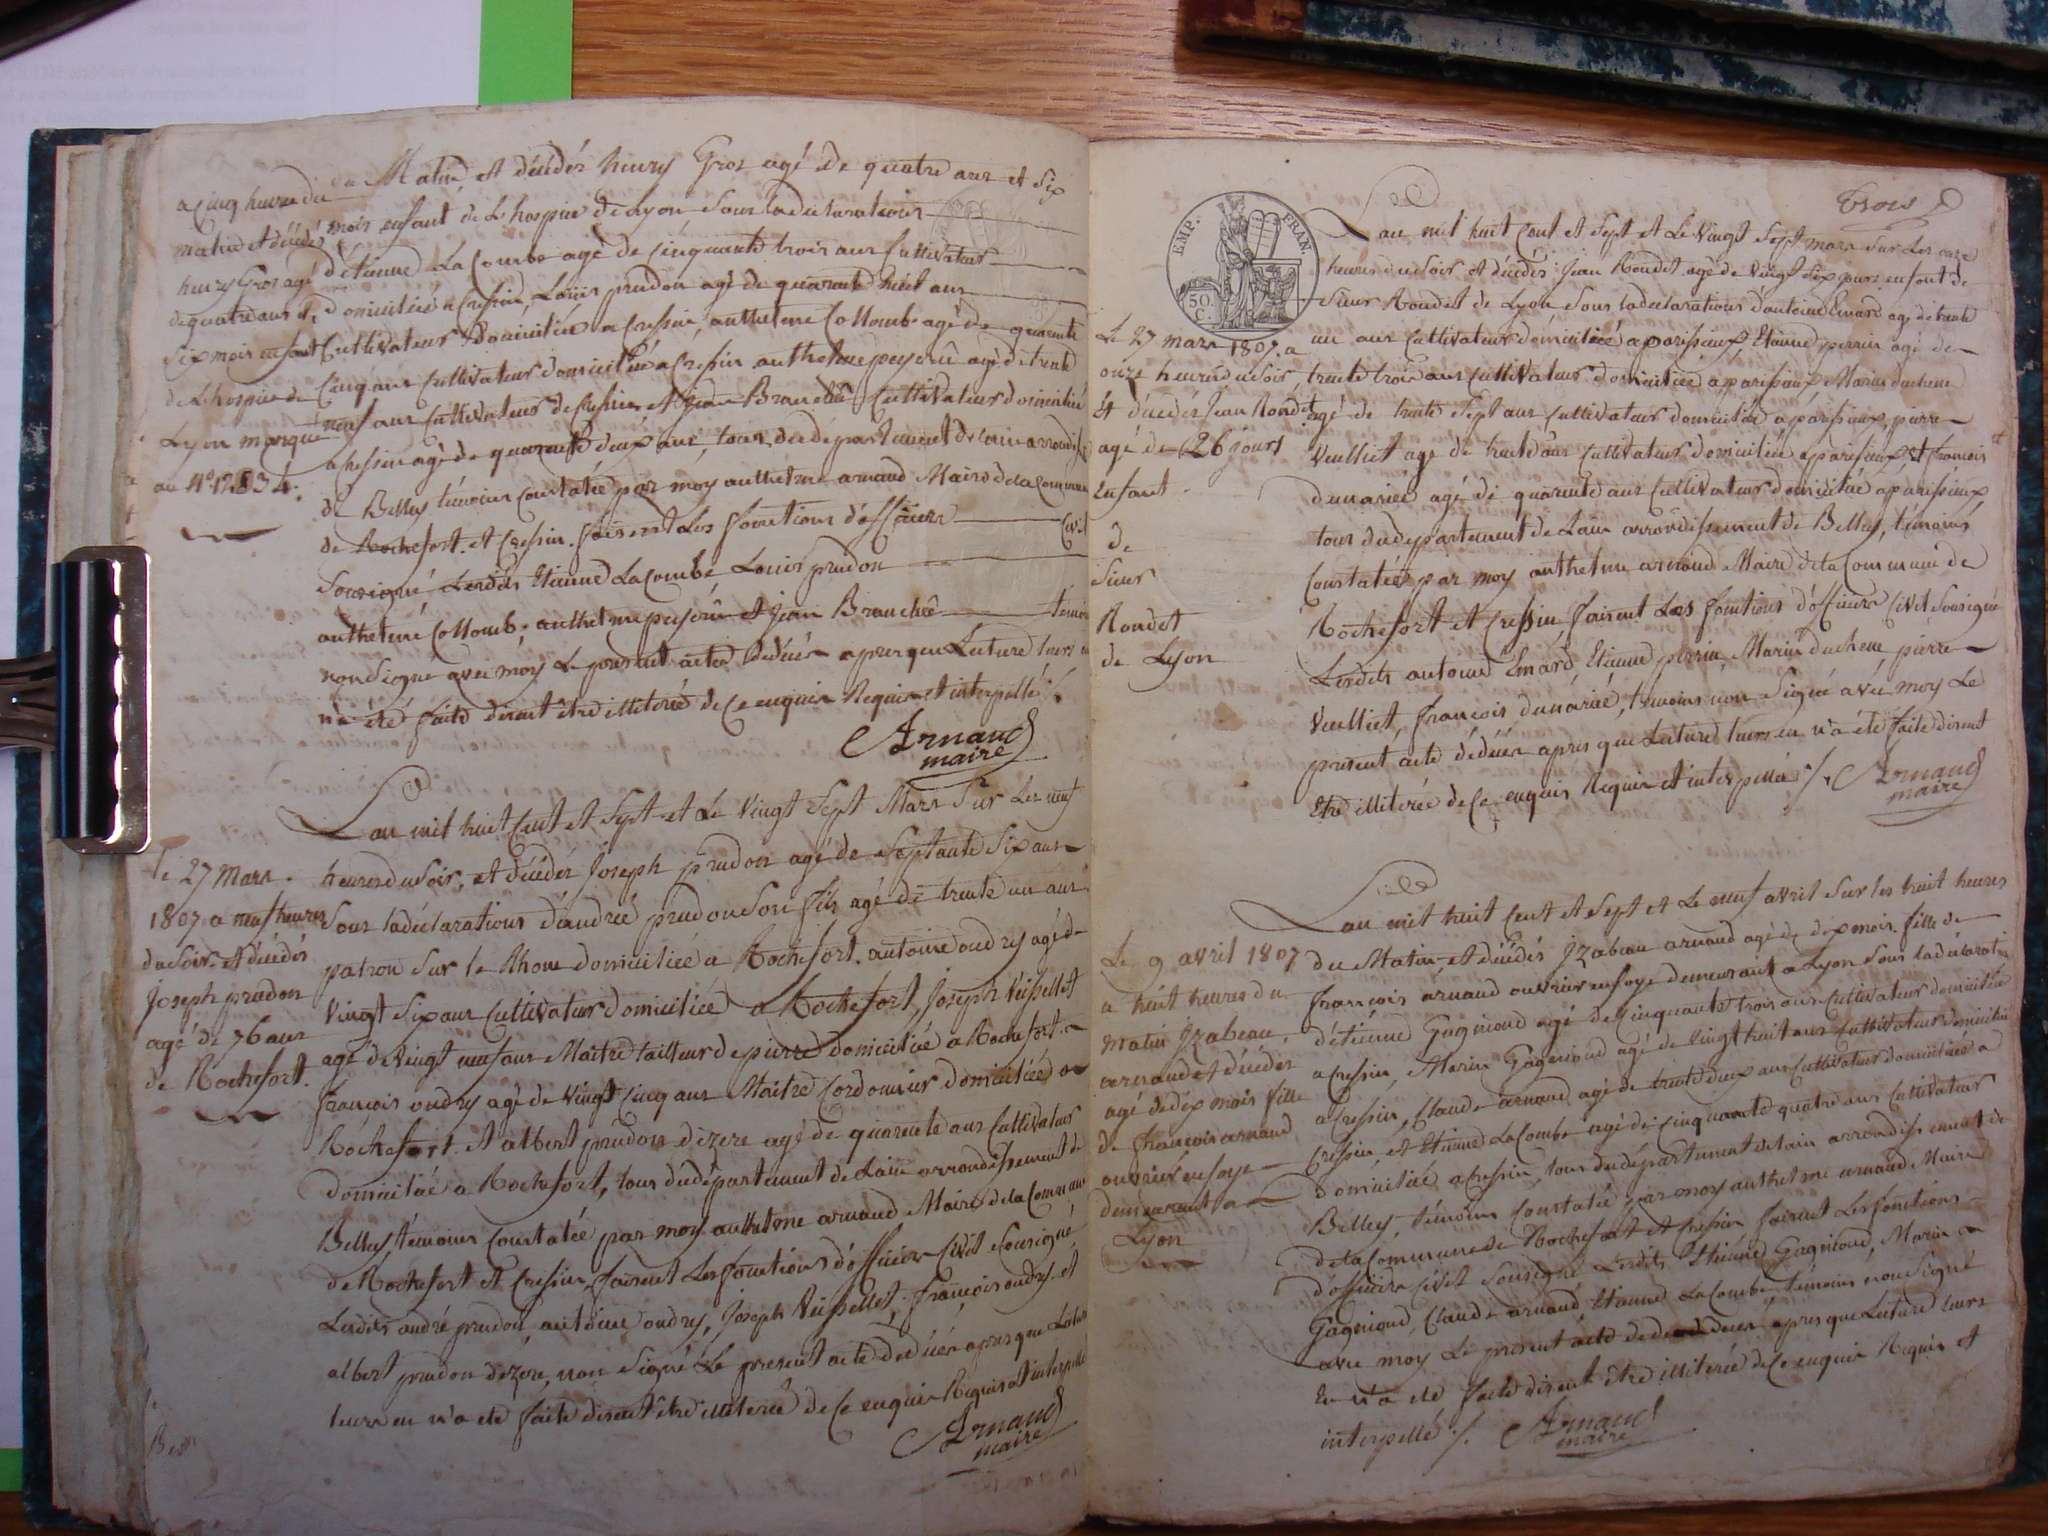 a Cinq heure du
matin et décédé
henry Gros agé
de quatre ans et
Six mois enfant
de L'hospice de
Lyon marque
au N° 12834.
Matin, et décédés henry Gros agé de quatre ans et Six
mois enfant de L'hospice de Lyon sous la déclarations
d'étienne La Combe agé de Cinquante trois ans Cultivateur
domiciliée a Cressin, Louis prudon agé de quarante huit ans
Cultivateur domiciliée a Cressin, anthelme Collomb agé de quarante
Cinq ans Cultivateur domiciliée a Cressin anthelme peyserû agé de trente
neuf ans Cultivateur de Cressin et Jean Branché Cultivateur domiciliée
a Cressin agé de quarante deux ans, tous du département de L'ain arrondis
de Belley témoins Constatée par moy anthelme arnaud Maire de la Commune
de Rochefort et Cressin faisent Les fonctions d'officiers Civil
Sousigné Lesdits Etienne La Combe Louis prudon
anthelme Collomb, anthelme peyserû et Jean Branchê temoins
non Signé avec moy Le present acte de décés apres que Lecture leurs en
n'a été faite disent être illiterée de Ce enquis Requis et interpellé ./.
Arnaud
maire
le 27 Mars
1807 a neuf heures
du soir et décédés
Joseph prudon
agé de 76 ans
de Rochefort.
Lan mil huit Cent et Sept et Le Vingt Sept Mars Sur Les neuf
heures du soir, et décédés Joseph prudon agé de Septante Six ans
Sous la déclarations d'andreé prudon Son fils agé de trente un ans
patron Sur le Rhone domiciliée a Rochefort, antoine oudry agé de
Vingt Six ans Cultivateur domiciliée a Rochefort, Joseph Veissellet
agé de Vingt neuf ans Maitre tailleur de pierre domiciliée a Rochefort
françois oudry agé de Vingt Cinq ans Maitre Cordonnier domiciliée a
Rochefort. et albert prudon dizere agé de quarente ans Cultivateur
domiciliée a Rochefort, tous du département de L'ain arrondissement de
Belley, témoins Constatée par moy anthelme arnaud Maire de la Commune
de Rochefort et Cressin faisent Les fonctions d'officier Civil Sousigné,
Lesdits andré prudon, antoine oudry, Joseph Veissellet, françois oudry et
albert prudon dezere, non Signé Le present acte de décés apres que Lecture
leurs en n'a été faite disent être illiterée de Ce enquis Requis et interpellé
Arnaud
maire
Trois
EMP. FRAN.
50
C.
Le 27 mars 1807. a
onze heures du soir,
Et décédés Jean Rondet
agé de 26 jours
Enfant
de
Sieur
Rondet
de Lyon
Lan mil huit Cent et Sept et Le Vingt Sept mars Sur Les onze
heures du soir et décédés Jean Rondet agé de Vingt Six jours enfant de
Sieur Rondet de Lyon Sous la déclarations d'antoine Emard agé de trente
un ans Cultivateur domiciliée a parissieux, Etienne perrin agé de
trente trois ans Cultivateur domiciliée a parissieux Marin duchene
agé de trente Sept ans Cultivateur domiciliée a parissieux, pierre
Vuilliet agé de trente ans Cultivateur domiciliée a parissieux et francois
dunariée agé de quarante ans Cultivateur domiciliée a parissieux
tous du département de Lain arrondissement de Belley, témoins
Constatée par moy anthelme arnaud Maire de la Commune de
Rochefort et Cressin faisent Les fonctions d'officiers Civil Sousigné
Lesdits antoine Emard, Etienne perrin, Marin duchene, pierre
Vuilliet, françois dunariée, temoins non Signé avec moy Le
present acte de décés apres que Lecture leurs en n'a été faite disent
Etre illiterée de Ce enquis Requis et interpellée ./. Arnaud
maire
Le 9 avril 1807
a huit heures du
matin Izabeau
arnaud et décédés
agé de dix mois fille
de françois arnaud
ouvrier en soye
demeurant a
Lyon
Lan mil huit Cent et Sept et Le neuf avril Sur les huit heures
du Matin et décédés Izabeau arnaud agé de dix mois fille de
françois arnaud ouvrier en soye demeurant a Lyon Sous la déclaration
d'étienne Gagnioud agé de Cinquante trois ans Cultivateur domiciliée
a Cressin, Marin Gagnioud agé de Vingt huit ans Cultivateur domiciliée
a Cressin, Claude arnaud agé de trente deux ans Cultivateur domiciliée a
Cressin, et Etienne La Combe agé de Cinquante quatre ans Cultivateur
domiciliée a Cressin, tous du département de lain arrondissement de
Belley, témoins Constatée par moy anthelme arnaud Maire
de la Commune de Rochefort et Cressin faisent Les fonctions
d'officiers Civil Sousigné Lesdits Etiénne Gagnioud, Marin
Gagnioud, Claude arnaud Etienne La Combe, témoins non Signé
avec moy Le present acte de décés apres que Lecture leurs
En n'a été faite disent être illiterée de Ce enquis Requis et
interpellé ./. Arnaud
maire